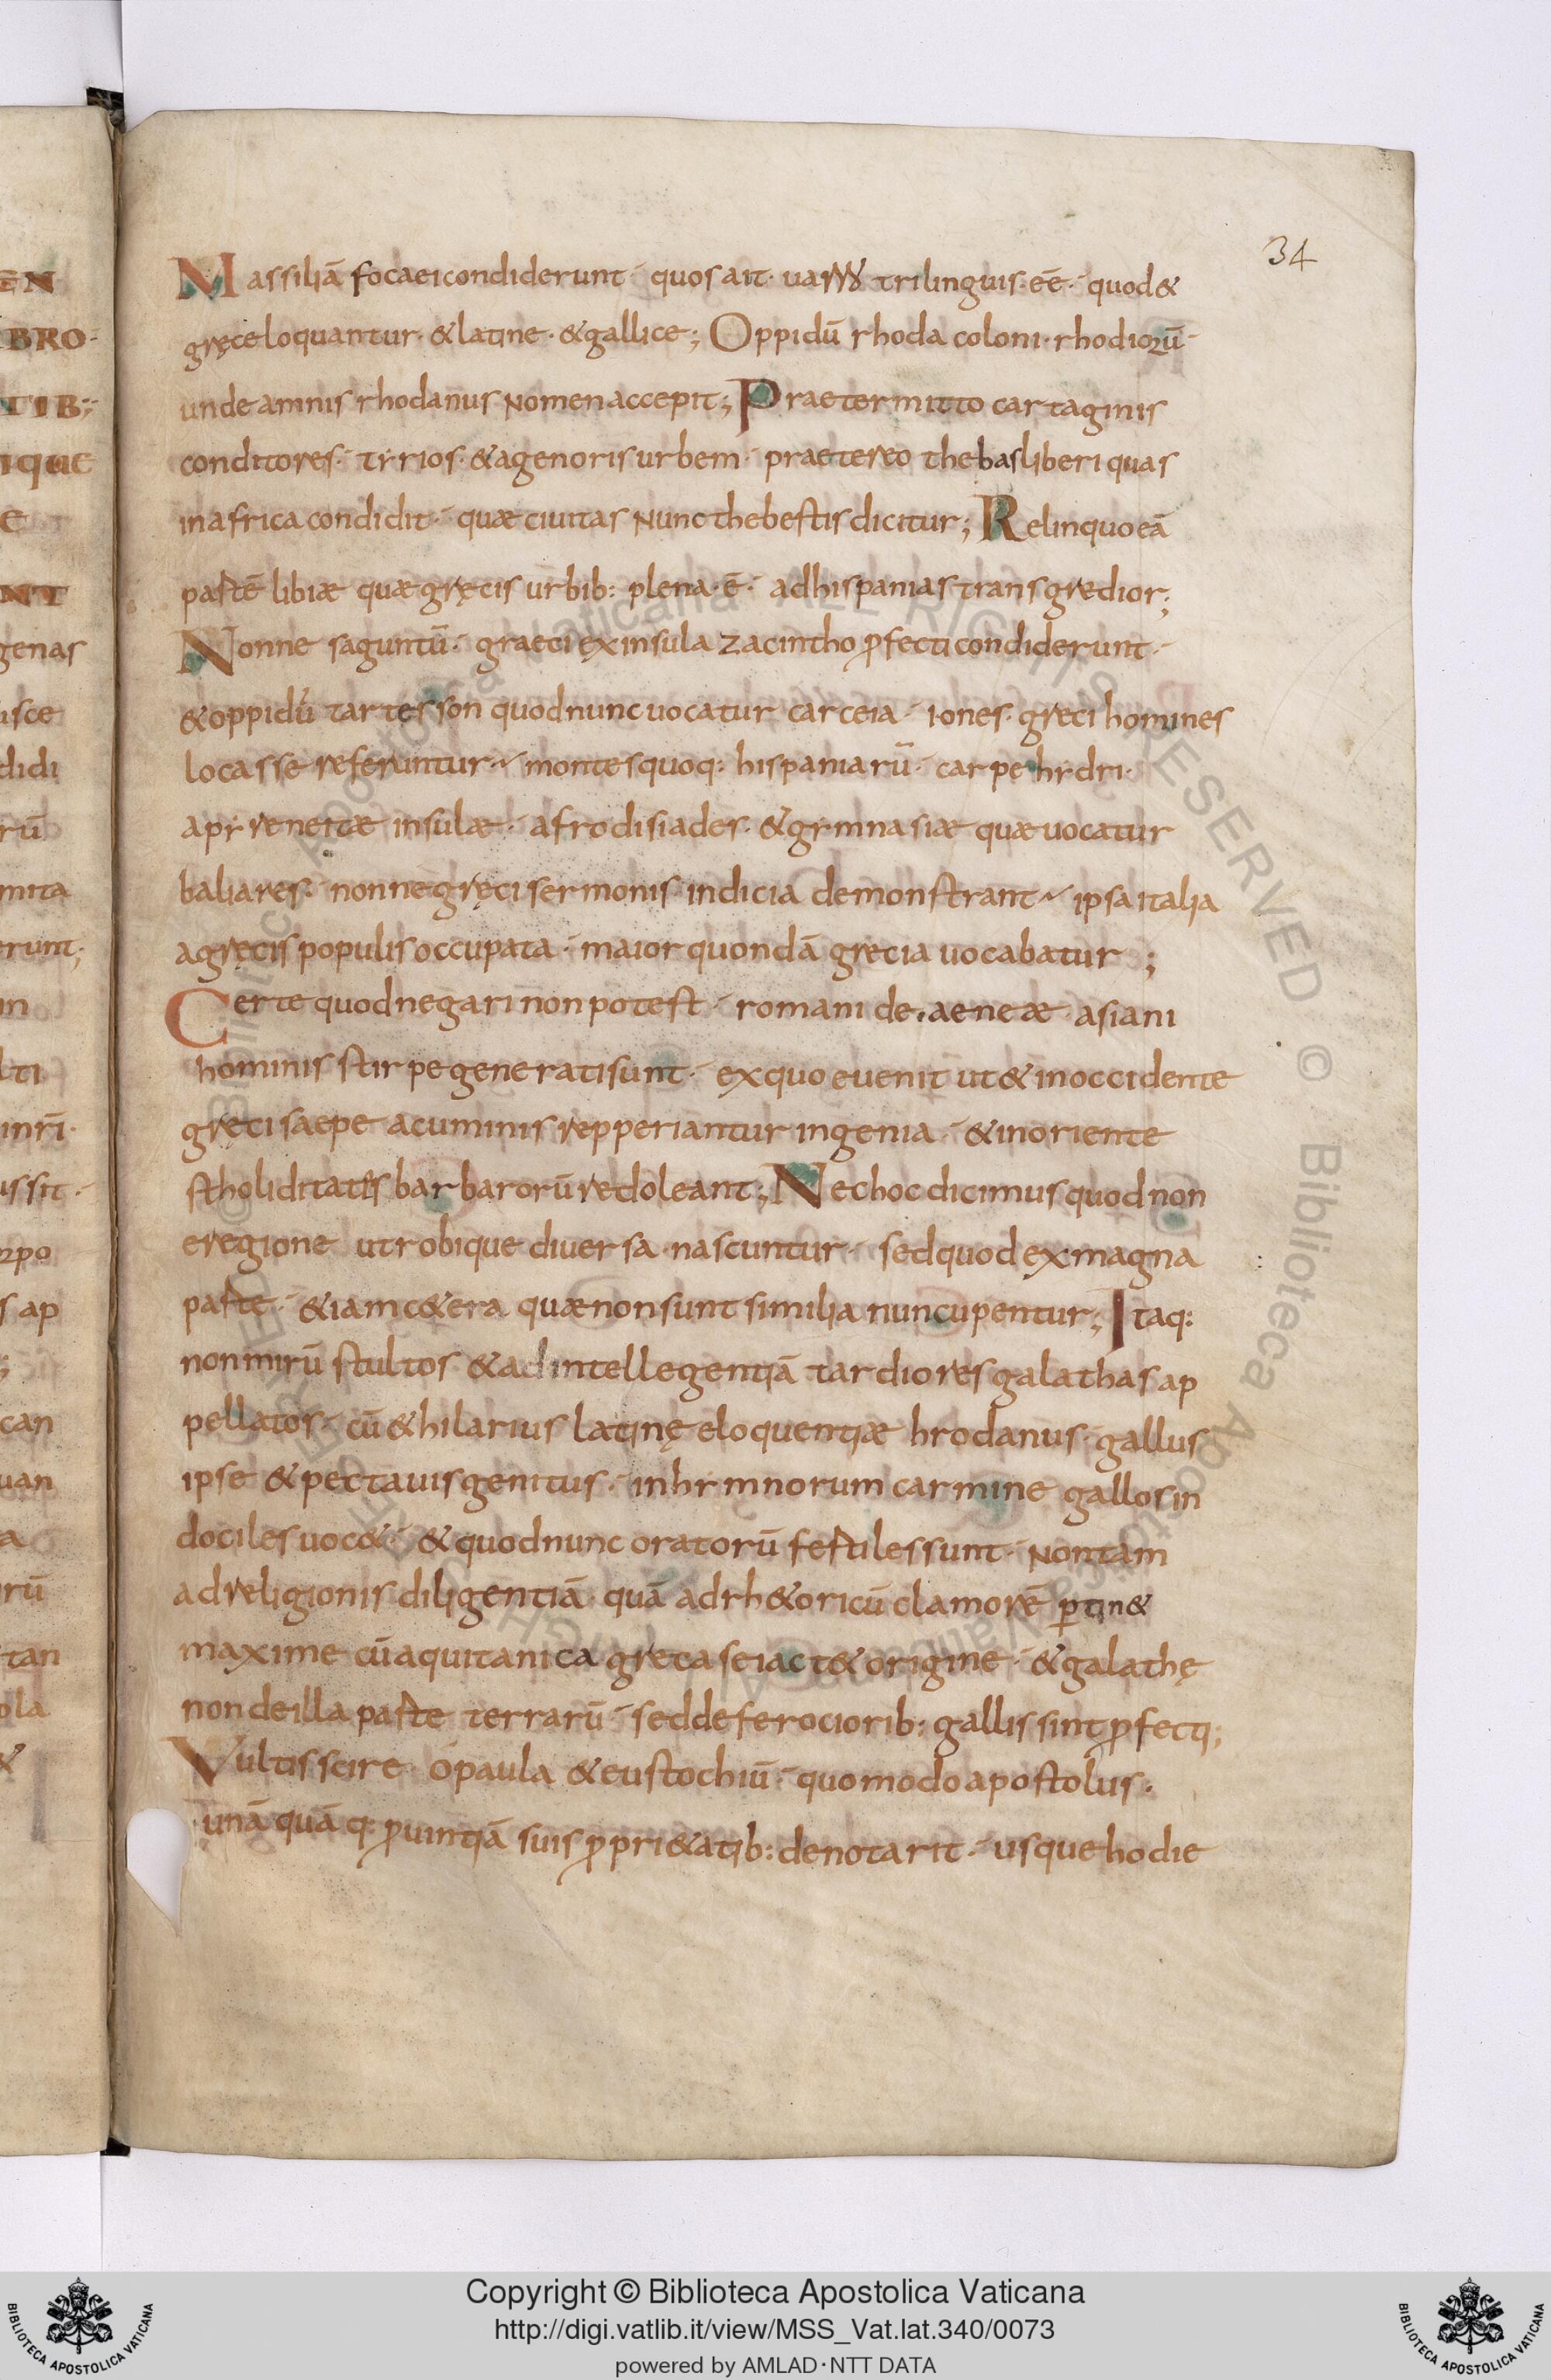 34
Massiliā focaei condiderunt· quos ait· trilinguis· eē·· quod &
gręce loquantur· & latine· & gallice; Oppidū rhoda coloni· rhodiorū·
unde amnis rhodanus nomen accepit; Praetermitto cartaginis
conditores· tyrios· & agenoris urbem· praetereo thebas liberi quas
in africa condidit· quæ ciuitas nunc thebestis dicitur; Relinquo eā
partē libiæ quæ gręcis urbib: plena· ē· ad hispanias transgredior;
Nonne saguntū· graeci ex insula zacintho ꝓfecti condiderunt·
& oppidū tartesson quod nunc uocatur carceia· iones· greci homines
locasse referuntur· montes quoq: hispaniarū· carpe hydri·
apyreneitæ insulæ· afrodisiades· & gymnasiæ quæ uocatur
baliares· nonne gręci sermonis indicia demonstrant· ipsa italia
a gręcis populis occupata· maior quondā grecia uocabatur ;
Certe quod negari non potest· romani de· aeneæ asiani
hominis stirpe generati sunt· ex quo euenit ut & in occidente
greci saepe acuminis repperiantur ingenia· & in oriente
stholiditates barbarorū redoleant; Nec hoc dicimus quod non
e regione utrobique diuersa nascuntur· sed quod ex magna
parte· &iam c&era quæ non sunt similia nuncupentur; Itaq:
non mirū stultos & ad intellegentiā tardiores galathas ap
pellatos· cū & hilarius latinę eloquentiæ hrodanus· gallus
ipse & pectauis genitus· in hymnorum carmine gallos in
dociles uoc&· & quod nunc oratorū fertiles sunt· non tam
ad religionis diligentiā· quā ad rh&oricū clamorē ꝑtin&
maxime cū aquitanica greca se iact& origine· & galathę
non de illa parte terrarū· sed de ferociorib: gallis sint ꝓfecti;
Vultis scire· o paula & eustochiū· quomodo apostolus·
unā quā q: ꝓuintiā suis ꝓpri&atib: denotarit· usque hodie
Copyright © Biblioteca Apostolica Vaticana
http://digi.vatlib.it/view/MSS_Vat.lat.340/0073
powered by AMLAD·NTT DATA
BIBLIOTECA APOSTOLICA VATICANA
BIBLIOTECA APOSTOLICA VATICANA